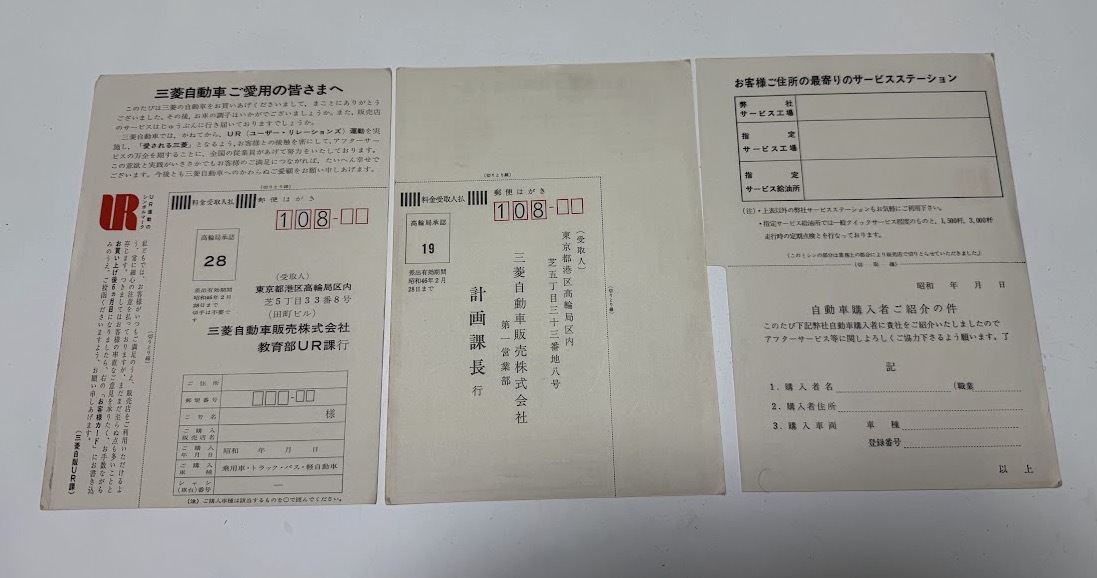 三菱自動車ご愛用の皆さまへ
このたびは三菱の自動車をお買いあげくださいまして、まことにありがとう
ございました。その後、お車の調子はいかがでございましょうか。また、販売店
のサービスはじゅうぶんに行き届いておりますでしょうか。
三菱自動車では、かねてから、UR（ユーザー・リレーションズ）運動を実
施し、「愛される三菱」となるよう、お客様との接触を密にして、アフターサー
ビスの万全を期することに、全国の従業員があげて努力をいたしております。
この意欲と実践がいささかでもお客様のご満足につながれば、たいへん幸せで
ございます。今後とも三菱自動車へのかわらぬご愛顧をお願い申しあげます。
UR
UR運動の
シンボルマーク
私どもでは、お客様がいつもご満足のうえ、販売店をご利用いただけるよ
う、常に細心の注意を払っておりますが、まだまだ至らぬ点も多いことと
存じます。つきましてはお客様の率直なご意見を承りたく、お手数ながら
お買い上げ後6カ月目になりましたら、右の「お客様カード」にお書き込
みのうえ、ご投函くださいますよう、お願い申しあげます。
（三菱自販UR課）
（切りとり線）
（切りとり線）
料金受取人払
郵便はがき
108-
高輪局承認
28
差出有効期間
昭和46年2月
28日まで
切手は不要で
す
（受取人）
東京都港区高輪局区内
芝5丁目33番8号
（田町ビル）
三菱自動車販売株式会社
教育部UR課行
ご住所
郵便番号
ご芳名
様
ご購入
販売店名
ご購入
年月日
昭和 年 月 日
ご購入
車種
乗用車・トラック・バス・軽自動車
シャシ
（車台）番号
―
（注）ご購入車種は該当するものを○で囲んでください。
（切りとり線）
料金受取人払
郵便はがき
108-
高輪局承認
19
差出有効期間
昭和46年2月
28日まで
（切りとり線）
（受取人）
東京都港区高輪局区内
芝五丁目三十三番地八号
三菱自動車販売株式会社
第一営業部
計画課長 行
お客様ご住所の最寄りのサービスステーション
弊社
サービス工場
指定
サービス工場
指定
サービス給油所
（注）・上表以外の弊社サービスステーションもお気軽にご利用下さい。
・指定サービス給油所では一般クイックサービス程度のものと、1,500粁、3,000粁
走行時の定期点検とを行なっております。
（このミシンの部分は業務上の都合により販売店で切りとらせていただきました）
（切取線）
昭和 年 月 日
自動車購入者ご紹介の件
このたび下記弊社自動車購入者に貴社をご紹介いたしましたので
アフターサービス等に関しよろしくご協力下さるよう願います。了
記
1．購入者名 （職業
2．購入者住所
3．購入車両 車種
登録番号
以上